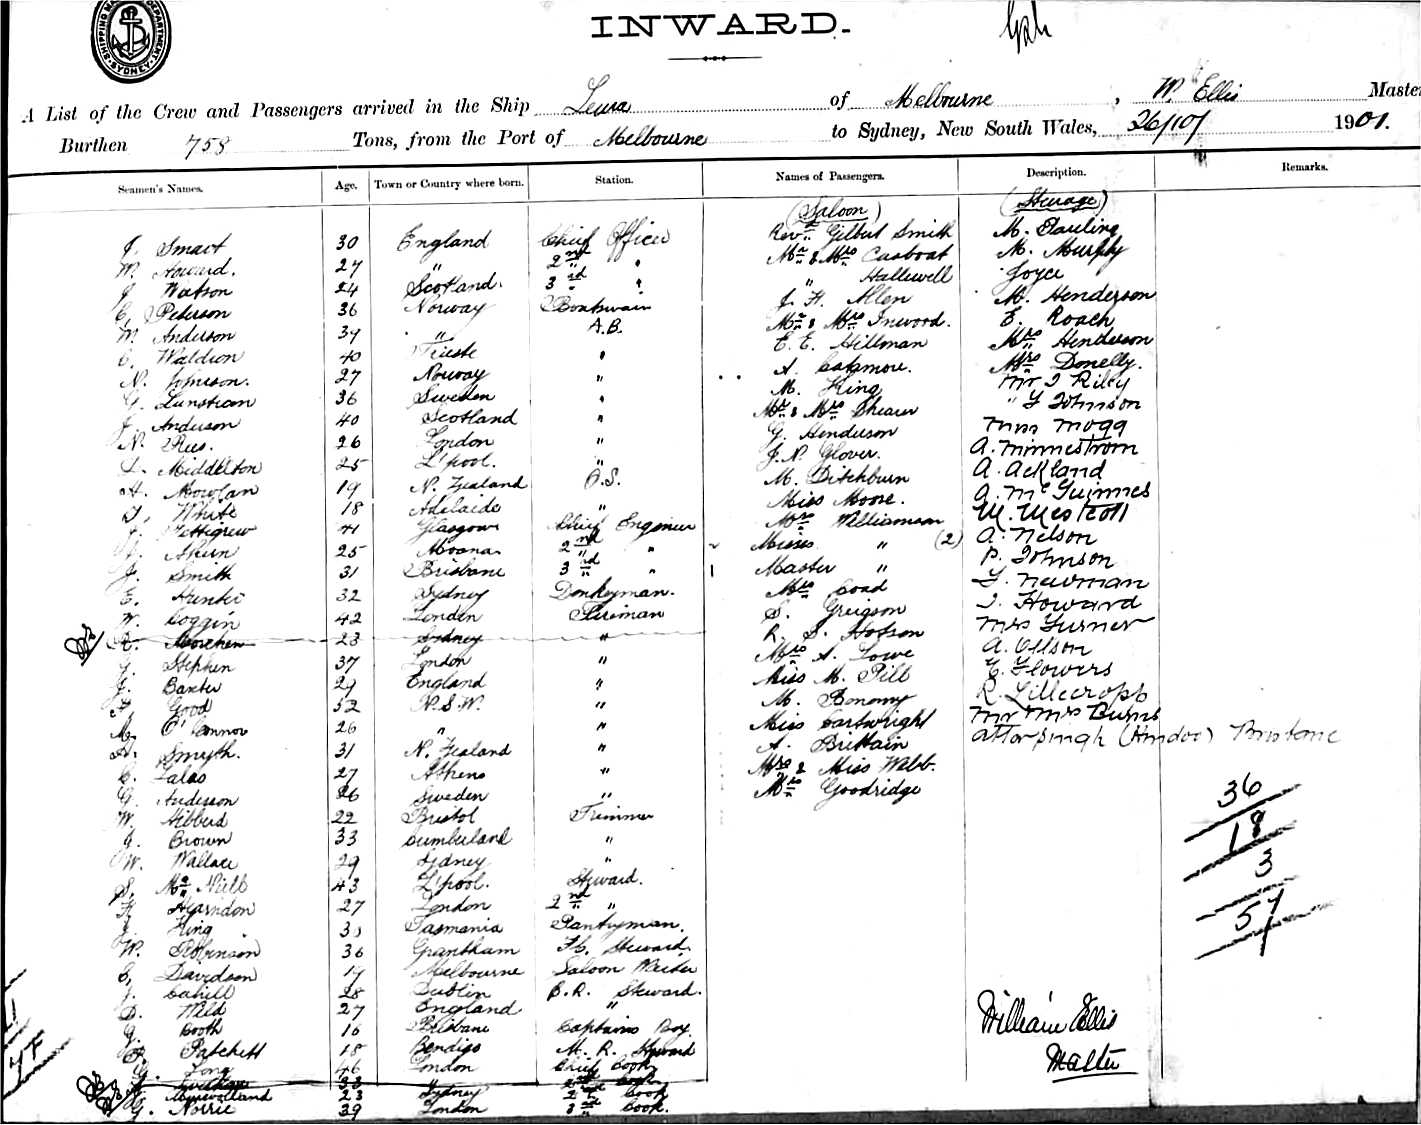 SHIPPING MA DEPARTMENT. SYDNEY.
INWARD.
A List of the Crew and Passengers arrived in the Ship Leura of Melbourne, W. Ellis Master
Burthen 758 Tons, from the Port of Melbourne to Sydney, New South Wales, 26/10/ 1901.
Seamen's Names. Age. Town or Country where born. Station. Names of Passengers. Description. Remarks.
(Saloon) (Steerage)
J. Smart 30 England Chief Officer
W. Howard. 27 " 2nd "
J. Watson 24 Scotland. 3rd "
C. Peterson 36 Norway Boatswain
M. Anderson 39 " A.B.
C. Waldron 40 Trieste "
N. Johnson. 27 Norway "
G. Lunstrom 36 Sweden "
J. Anderson 40 Scotland "
N. Rees. 26 London "
L. Middleton 25 L'pool. "
H. Mowlan 19 N. Zealand O.S.
White 18 Adelaide "
J. Pettigrew 41 Glasgow Chief Engineer
25 Moana 2nd "
J. Smith 31 Brisbane 3rd "
E. Hunter 32 Sydney Donkeyman.
W. Coggin 42 London Fireman
23 Sydney "
J. Stephen 37 London "
J. Baxter 29 England "
Good 32 N.S.W. "
M. O'Connor 26 " "
H. Smyth. 31 N. Zealand "
C. Lalas 27 Athens "
G. Anderson 26 Sweden "
W. Hibberd 22 Bristol Trimmer
J. Brown 33 Cumberland "
W. Wallace 29 Sydney "
S. McNeill 43 L'pool. Steward.
H. Hearndon 27 London 2nd "
J. King Tasmania Pantryman.
W. Robinson 36 Grantham F.C. Steward.
C. Davidson 19 Melbourne Saloon Waiter
J. Cahill 28 Dublin B.R. Steward.
D. Wild 27 England "
J. Booth 16 Brisbane Captains Boy.
Patchett 18 Bendigo M.R. Steward
G. Long 46 London Chief Cook
33 " 2nd Cook
23 Sydney 2nd Cook
G. Norrie 39 London 3rd Cook.
Revd Gilbert Smith
Mr & Mrs Casboat
" Hallewell
J. H. Allen
Mr & Mrs Inwood.
E. E. Hillman
A. Catamore.
M. King
Mr & Mrs Shearer
G. Henderson
J. N. Glover.
M. Ditchburn
Miss Moore.
Mrs Williamson
Misses " (2)
Master "
Mrs Coad
S. Greigson
R. S. Hobson
Mrs A. Lowe
Miss M. Pill
M. Bonomy
Miss Cartwright
A. Brittain
Mrs & Miss Webb.
Mrs Goodridge
M. Pauling
M. Murphy
Joyce
M. Henderson
E. Roach
Mrs Henderson
Mrs Donelly.
Mr J Riley
" J Johnson
Miss Mogg
A. Minnestrom
A. Ackland
A. McGuinnes
M. Mestoll
A. Nelson
P. Johnson
J. Newman
J. Howard
Mrs Turner
A. Ollson
E. Flowers
R. Lillecropp
Mr Mrs Burns
Attar Singh (Hindoo) Brisbane
36
18
3
57
William Ellis
Master